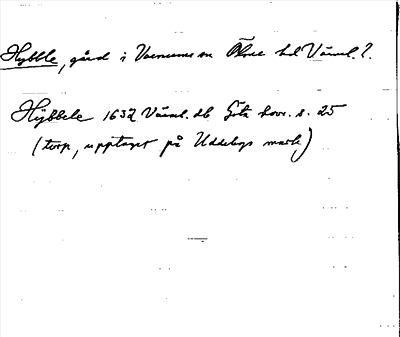 Hybble, gård i Varnums sn Ölme hd Värml. l.
Hÿbbele 1632 Värml. db Göta hovr. s. 25
(torp, upptaget på Uddebys mark)